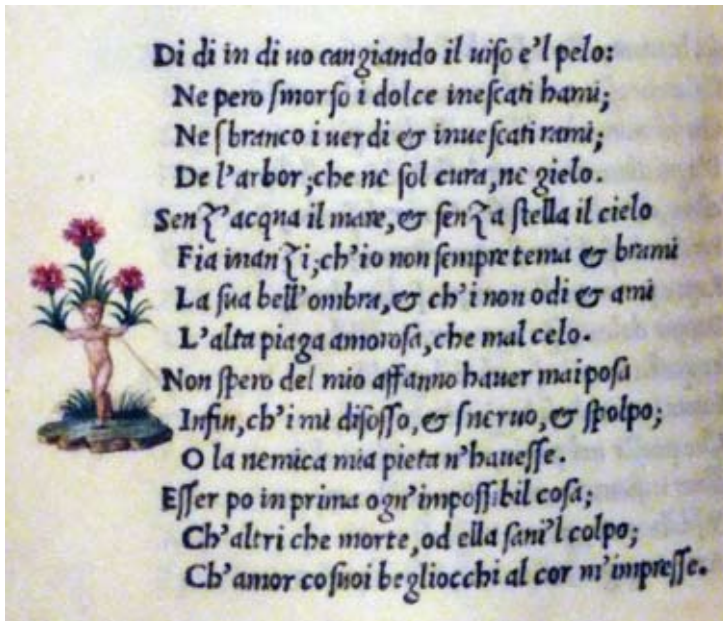 Di di in di uo cangiando il uiſo e'l pelo:
Ne pero ſmorſo i dolce ineſcati hami;
Ne ſbranco i uerdi & inueſcati rami;
De l'arbor; che ne ſol cura, ne gielo.
Senz'acqua il mare, & ſenza ſtella il cielo
Fia inanzi; ch'io non ſempre tema & brami
La ſua bell'ombra, & ch'i non odi & ami
L'alta piaga amoroſa, che mal celo.
Non ſpero del mio affanno hauer mai poſa
Infin, ch'i mi diſoſſo, & ſneruo, & ſpolpo;
O la nemica mia pieta n'haueſſe.
Eſſer po in prima ogn'impoſſibil coſa;
Ch'altri che morte, od ella ſani'l colpo;
Ch'amor co ſuoi begliocchi al cor m'impreſſe.